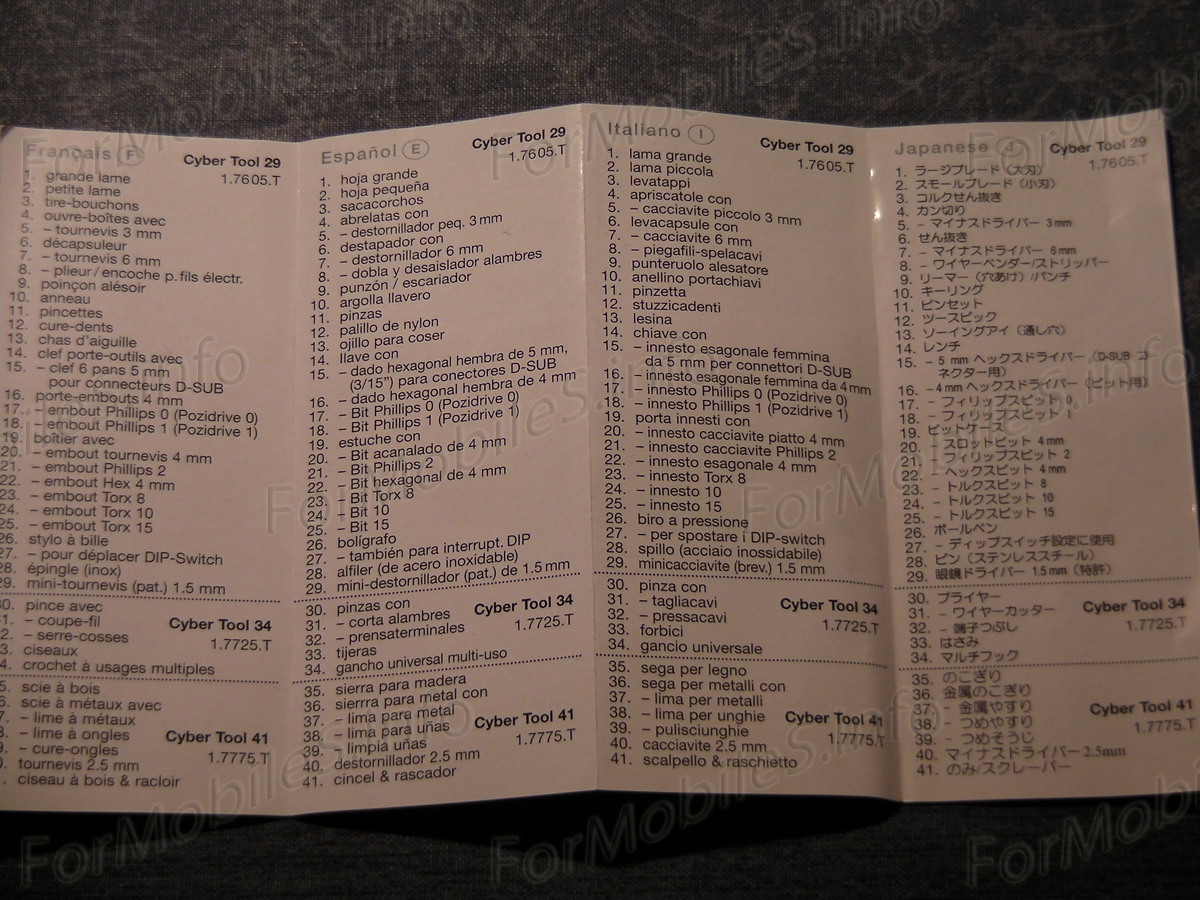 Français F
Cyber Tool 29
1.7605.T
1. grande lame
2. petite lame
3. tire-bouchons
4. ouvre-boîtes avec
5. – tournevis 3 mm
6. décapsuleur
7. – tournevis 6 mm
8. – plieur/encoche p. fils électr.
9. poinçon alésoir
10. anneau
11. pincettes
12. cure-dents
13. chas d'aiguille
14. clef porte-outils avec
15. – clef 6 pans 5 mm
pour connecteurs D-SUB
16. porte-embouts 4 mm
17. – embout Phillips 0 (Pozidrive 0)
18. – embout Phillips 1 (Pozidrive 1)
19. boîtier avec
20. – embout tournevis 4 mm
21. – embout Phillips 2
22. – embout Hex 4 mm
23. – embout Torx 8
24. – embout Torx 10
25. – embout Torx 15
26. stylo à bille
27. – pour déplacer DIP-Switch
28. épingle (inox)
29. mini-tournevis (pat.) 1.5 mm
30. pince avec
31. – coupe-fil
Cyber Tool 34
32. – serre-cosses
1.7725.T
33. ciseaux
34. crochet à usages multiples
35. scie à bois
36. scie à métaux avec
37. – lime à métaux
38. – lime à ongles
Cyber Tool 41
39. – cure-ongles
1.7775.T
40. tournevis 2.5 mm
41. ciseau à bois & racloir
Español E
Cyber Tool 29
1.7605.T
1. hoja grande
2. hoja pequeña
3. sacacorchos
4. abrelatas con
5. – destornillador peq. 3 mm
6. destapador con
7. – destornillador 6 mm
8. – dobla y desaislador alambres
9. punzón / escariador
10. argolla llavero
11. pinzas
12. palillo de nylon
13. ojillo para coser
14. llave con
15. – dado hexagonal hembra de 5 mm,
(3/15") para conectores D-SUB
16. – dado hexagonal hembra de 4 mm
17. – Bit Phillips 0 (Pozidrive 0)
18. – Bit Phillips 1 (Pozidrive 1)
19. estuche con
20. – Bit acanalado de 4 mm
21. – Bit Phillips 2
22. – Bit hexagonal de 4 mm
23. – Bit Torx 8
24. – Bit 10
25. – Bit 15
26. bolígrafo
27. – también para interrupt. DIP
28. alfiler (de acero inoxidable)
29. mini-destornillador (pat.) de 1.5 mm
30. pinzas con
31. – corta alambres
Cyber Tool 34
32. – prensaterminales
1.7725.T
33. tijeras
34. gancho universal multi-uso
35. sierra para madera
36. sierrra para metal con
37. – lima para metal
38. – lima para uñas
Cyber Tool 41
39. – limpia uñas
1.7775.T
40. destornillador 2.5 mm
41. cincel & rascador
Italiano I
Cyber Tool 29
1.7605.T
1. lama grande
2. lama piccola
3. levatappi
4. apriscatole con
5. – cacciavite piccolo 3 mm
6. levacapsule con
7. – cacciavite 6 mm
8. – piegafili-spelacavi
9. punteruolo alesatore
10. anellino portachiavi
11. pinzetta
12. stuzzicadenti
13. lesina
14. chiave con
15. – innesto esagonale femmina
da 5 mm per connettori D-SUB
16. – innesto esagonale femmina da 4 mm
17. – innesto Phillips 0 (Pozidrive 0)
18. – innesto Phillips 1 (Pozidrive 1)
19. porta innesti con
20. – innesto cacciavite piatto 4 mm
21. – innesto cacciavite Phillips 2
22. – innesto esagonale 4 mm
23. – innesto Torx 8
24. – innesto 10
25. – innesto 15
26. biro a pressione
27. – per spostare i DIP-switch
28. spillo (acciaio inossidabile)
29. minicacciavite (brev.) 1.5 mm
30. pinza con
31. – tagliacavi
Cyber Tool 34
32. – pressacavi
1.7725.T
33. forbici
34. gancio universale
35. sega per legno
36. sega per metalli con
37. – lima per metalli
38. – lima per unghie
Cyber Tool 41
39. – pulisciunghie
1.7775.T
40. cacciavite 2.5 mm
41. scalpello & raschietto
Japanese J
Cyber Tool 29
1.7605.T
1. ラージブレード（大刃）
2. スモールブレード（小刃）
3. コルクせん抜き
4. カン切り
5. – マイナスドライバー 3 mm
6. せん抜き
7. – マイナスドライバー 6 mm
8. – ワイヤーベンダー/ストリッパー
9. リーマー（穴あけ）/パンチ
10. キーリング
11. ピンセット
12. ツースピック
13. ソーイングアイ（通し穴）
14. レンチ
15. – 5 mm ヘックスドライバー（D-SUB コ
ネクター用）
16. – 4 mm ヘックスドライバー（ビット用）
17. – フィリップスビット 0
18. – フィリップスビット 1
19. ビットケース
20. – スロットビット 4 mm
21. – フィリップスビット 2
22. – ヘックスビット 4 mm
23. – トルクスビット 8
24. – トルクスビット 10
25. – トルクスビット 15
26. ボールペン
27. – ディップスイッチ設定に使用
28. ピン（ステンレススチール）
29. 眼鏡ドライバー 1.5 mm（特許）
30. プライヤー
31. – ワイヤーカッター
Cyber Tool 34
32. – 端子つぶし
1.7725.T
33. はさみ
34. マルチフック
35. のこぎり
36. 金属のこぎり
37. – 金属やすり
38. – つめやすり
Cyber Tool 41
39. – つめそうじ
1.7775.T
40. マイナスドライバー 2.5mm
41. のみ/スクレーパー
ForMobiles.info